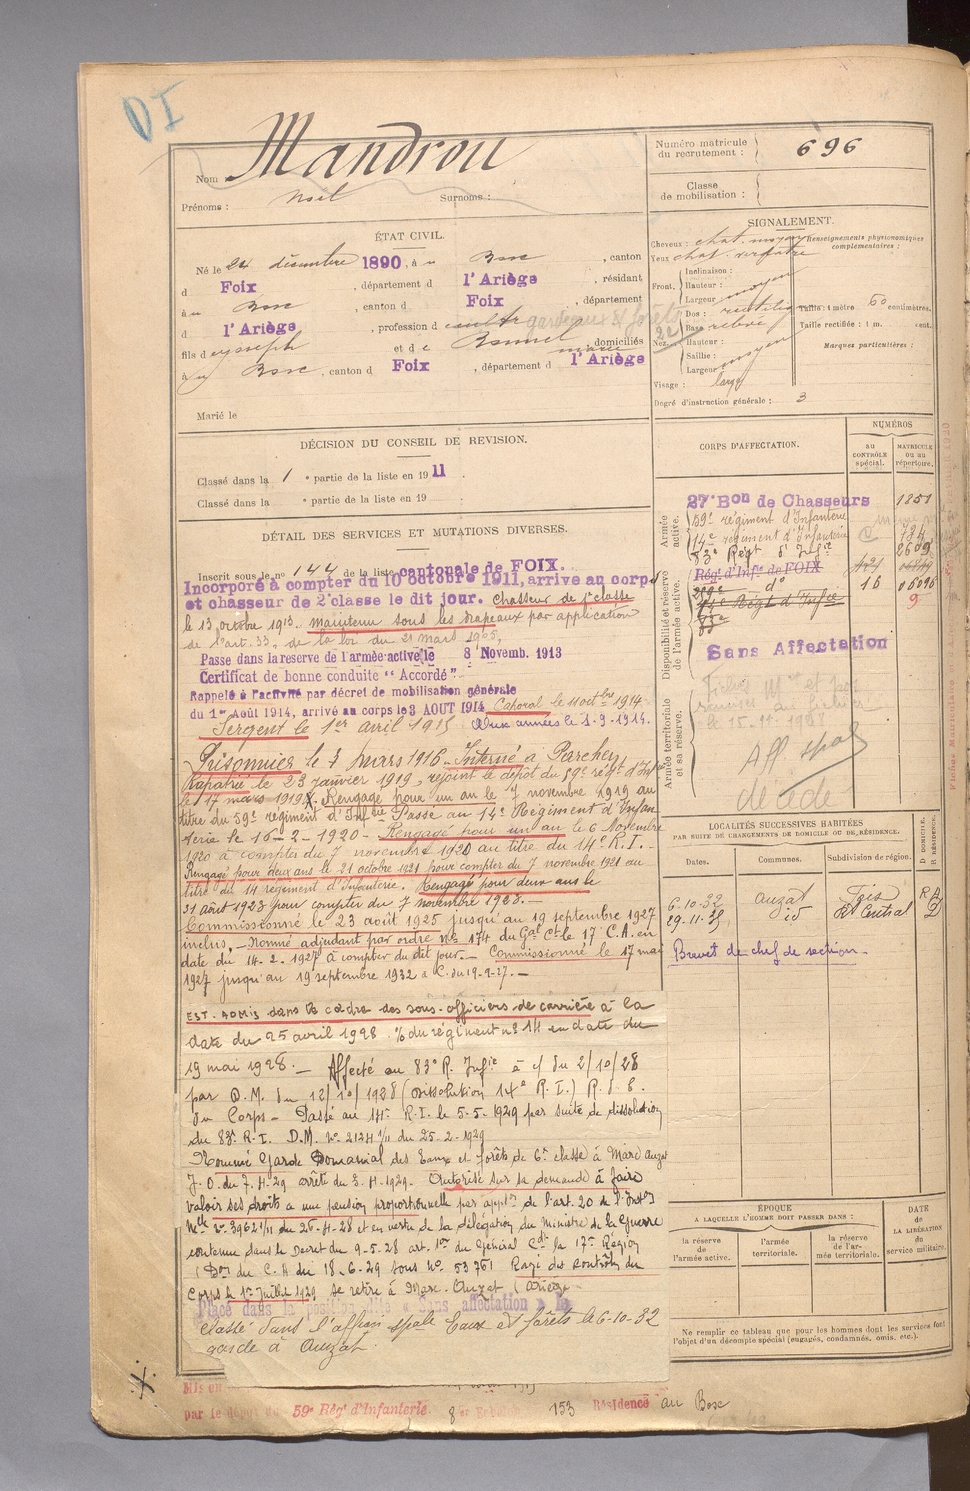 DI
Nom : Mandrou
Prénoms : Noël Surnoms :
Numéro matricule du recrutement : 696
Classe de mobilisation :
ÉTAT CIVIL.
Né le 24 décembre 1890, à u Bosc, canton
d Foix, département d l'Ariège, résidant
à u Bosc, canton d Foix, département
d l'Ariège, profession de cultr garde eaux & forêts
fils de Joseph et de Bonnel Marie, domiciliés
à u Bosc, canton d Foix, département d l'Ariège
Marié le
SIGNALEMENT.
Cheveux : chat. moyen
Yeux chat. verdâtre
Front. Inclinaison :
Hauteur :
Largeur moyen
Nez. Dos : rectiligne
Base relevé
Hauteur :
Saillie :
Largeur moyen
Visage : large
Renseignements physionomiques complémentaires :
Taille : 1 mètre 60 centimètres.
Taille rectifiée : 1 m. cent.
Marques particulières :
Degré d'instruction générale : 3
DÉCISION DU CONSEIL DE REVISION.
Classé dans la 1 e partie de la liste en 1911
Classé dans la e partie de la liste en 19
DÉTAIL DES SERVICES ET MUTATIONS DIVERSES.
Inscrit sous le n° 144 de la liste cantonale de FOIX.
Incorporé à compter du 10 octobre 1911, arrive au corps
et chasseur de 2e classe le dit jour. Chasseur de 1e classe
le 13 octobre 1913. Maintenu sous les drapeaux par application
de l'art. 33, de la loi du 21 mars 1905.
Passe dans la reserve de l'armée active le 8 Novemb. 1913
Certificat de bonne conduite "Accordé".
Rappelé à l'activité par décret de mobilisation générale
du 1er Août 1914, arrivé au corps le 3 AOUT 1914. Caporal le 11 octbre 1914
Sergent le 1er avril 1915
Prisonnier le 7 mars 1916. Interné à Parchey
Rapatrié le 23 janvier 1919, rejoint le dépôt du 59e régt d'Infie
le 17 mars 1919. Rengagé pour un an le 7 novembre 1919 au
titre du 59e régiment d'Infrie Passe au 14e Régiment d'Infan
terie le 16-2-1920 - Rengagé pour un an le 6 Novembre
1920 à compter du 7 novembre 1920 au titre du 14e R.I.-
Rengagé pour deux ans le 21 octobre 1921 pour compter du 7 novembre 1921 au
titre du 14 régiment d'Infanterie. Rengagé pour deux ans le
31 août 1923 pour compter du 7 novembre 1923.-
Commissionné le 23 août 1925 jusqu'au 19 septembre 1927
inclus. - Nommé adjudant par ordre n° 174 du Gal Ct le 17 C.A. en
date du 14-2-1927 à compter du dit jour. - Commissionné le 17 mai
1927 jusqu'au 19 septembre 1932 à C. du 19-9-27. -
EST. ADMIS dans le cadre des sous-officiers de carrière à la
date du 25 avril 1928. % du régiment n° 14 en date du
19 mai 1928. - Affecté au 83e R. Infie à c/ du 2/10/28
par D.M. du 12/10/1928 (Dissolution 14e R.I.) R. d. C.
du Corps - Passé au 14e R.I. le 5-5-1929 par suite de dissolution
du 83e R.I. D.M. N° 2124 1/11 du 25-2-1929
Nommé Garde Domanial des Eaux et forêts de 6e classe à Marc Auzat
J.O. du 7-4-29 arrêté du 3-4-1929. Autorisé sur sa demande à faire
valoir ses droits à une pension proportionnelle par applon de l'art. 20 de l'Inston
Mlle N° 3962 1/11 du 26-4-28 et en vertu de la délégation du Ministre de la Guerre
contenue dans le Decret du 9-5-28 art. 1er du Général Cdt la 17e Région
(Don du C.A du 18-6-29 sous N° 53761 Rayé des Contrôles du
Corps le 1er Juillet 1929 se retire à Marc. Auzat (Ariège
Placé dans la position dite « Sans affectation » le
Classé dans l'affon spale Eaux et forêts le 6-10-32
garde à Auzat.
par le dépôt du 59e Rég' d'Infanterie. 153 Résidence au Bosc
CORPS D'AFFECTATION.
NUMÉROS
au CONTRÔLE spécial.
MATRICULE ou au répertoire.
Armée active.
27e Bon de Chasseurs 1851
59e régiment d'Infanterie
14e régiment d'Infanterie
83e Régt d'Infie 2609
Disponibilité et réserve de l'armée active.
Régt d'Infie de FOIX
209e do 16
Sans Affectation
Armée territoriale et sa réserve.
le 15-11-1931
Aff spale
décédé
LOCALITÉS SUCCESSIVES HABITÉES
PAR SUITE DE CHANGEMENTS DE DOMICILE OU DE RÉSIDENCE.
Dates. Communes. Subdivision de région. D DOMICILE. R RÉSIDENCE.
6-10-32 Auzat Foix R
29-11-35 id Rt Central D
Brevet de chef de section.
ÉPOQUE
À LAQUELLE L'HOMME DOIT PASSER DANS :
la réserve de l'armée active.
l'armée territoriale.
la réserve de l'armée territoriale.
DATE de LA LIBÉRATION du service militaire.
Ne remplir ce tableau que pour les hommes dont les services font
l'objet d'un décompte spécial (engagés, condamnés, omis, etc.).